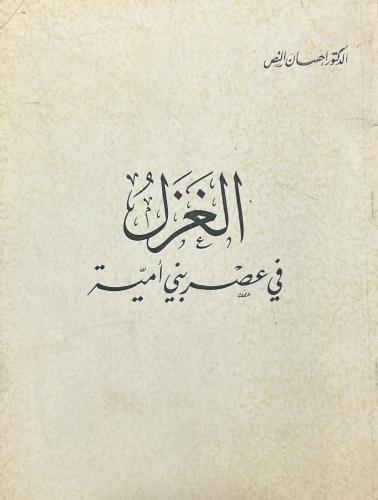 الدكتور إحسان النص
الغَزَلُ
في عصر بني أميّة